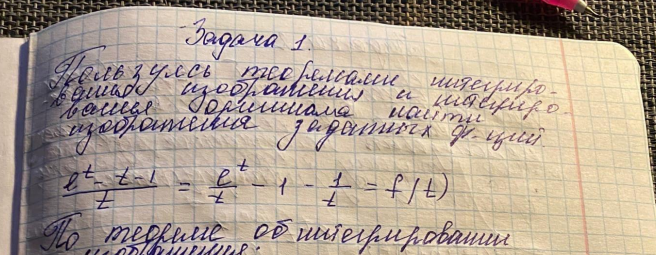 Задача 1.
Пользуясь теоремами интегриро-
вания изображения и интегриро-
вания оригинала найти
изображения заданных ф-ций
(e^t - t - 1)/t = e^t/t - 1 - 1/t = f(t)
По теореме об интегрировании
изображения: